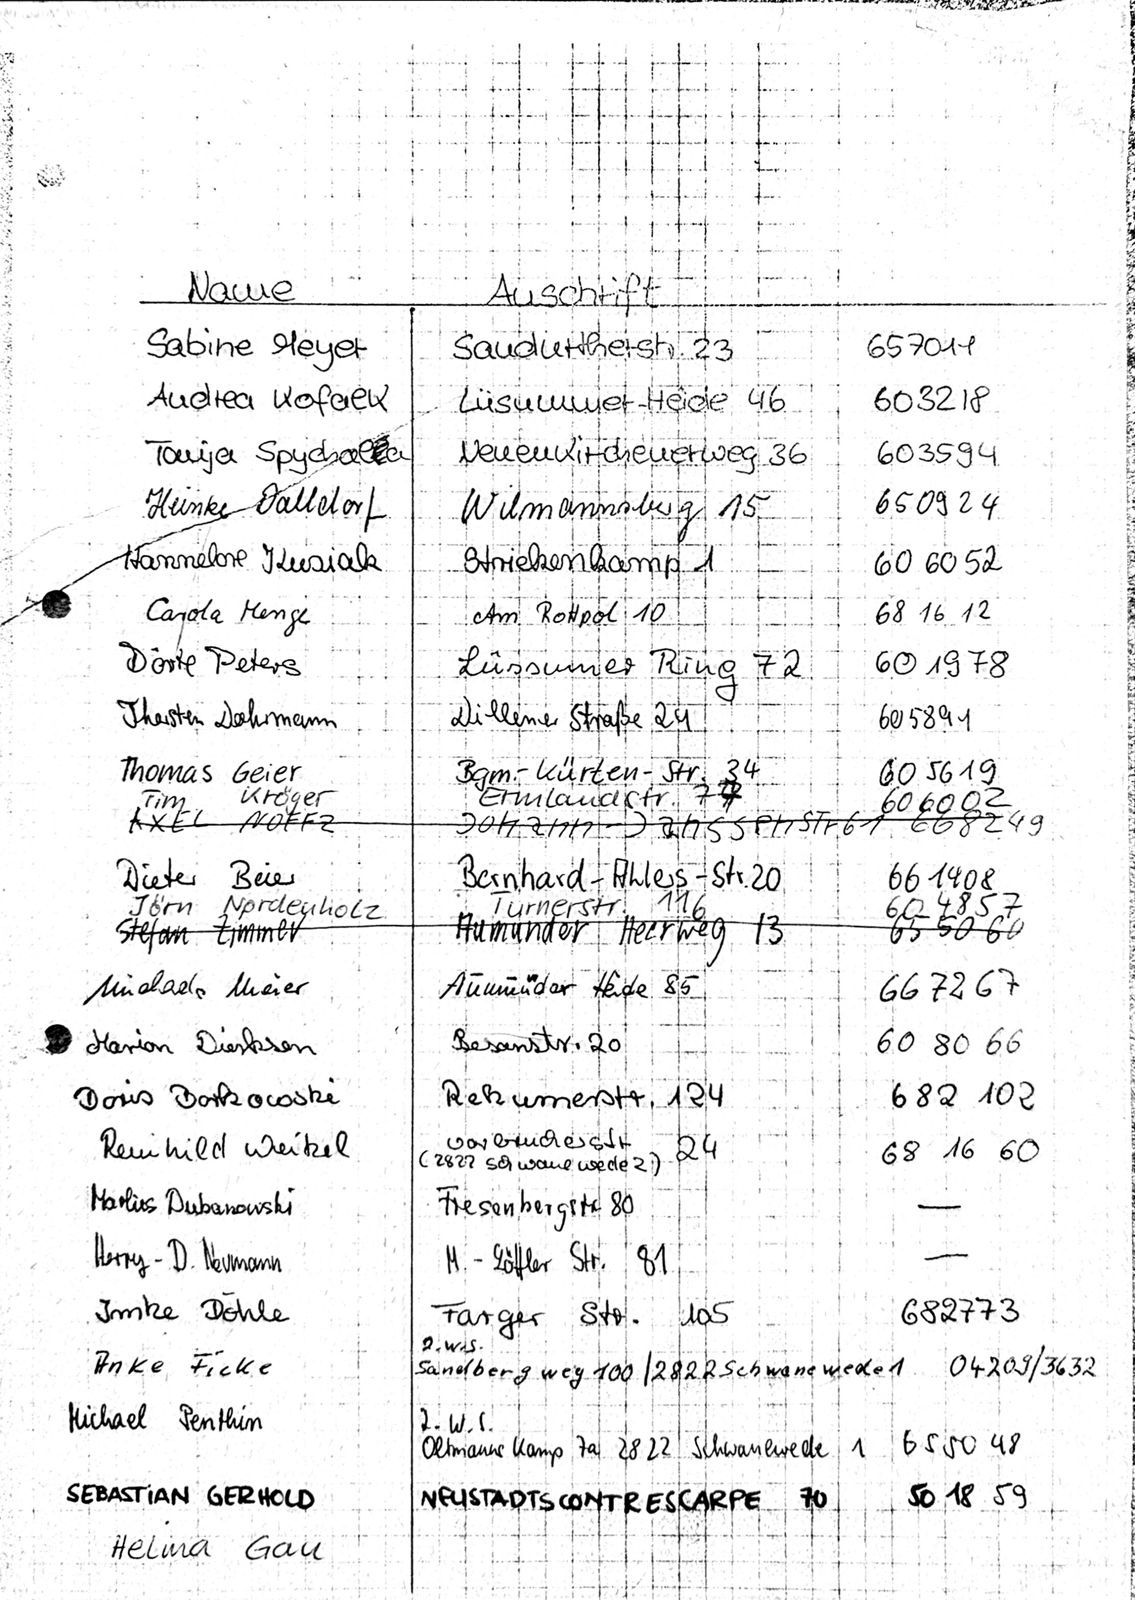 Name Auschrift
Sabine Meyer Sandurtherstr. 23 657011
Andrea Kofaek Lüsummer-Heide 46 603218
Tanija Spychalla Neuenkirchenerweg 36 603594
Heinke Dalldorf Wilmannsberg 15 650924
Hannelore Kusiak Striekenkamp 1 606052
Carola Menge Am Rottpol 10 68 16 12
Dörte Peters Lüssumer Ring 72 601978
Thorsten Dahrmann Dillener Straße 24 605891
Thomas Geier Bgm.-Kürten-Str. 34 605619
Tim Kröger Ermlandstr. 77 606002
AXEL NOLTZ Johann-Janssen Str 61 668249
Dieter Beier Bernhard-Ahlers-Str. 20 661408
Jörn Nordenholz Turnerstr. 116 604857
Stefan Zimmer Aumunder Heerweg 13 65 50 60
Michaela Meier Aumünder Heide 85 667267
Marion Dierksen Besanstr. 20 60 80 66
Doris Borkowski Rekumerstr. 124 682 102
Reinhild Weikel 24 68 16 60
(2822 Schwanewede 2)
Marlies Dubanowski Fresenbergstr 80 —
Herry-D. Neumann H.-Löffler Str. 81 —
Imke Döhle Farger Str. 105 682773
2.W.S.
Anke Ficke Sandbergweg 100/2822 Schwanewede 1 04209/3632
Michael Penthin 2.W.S.
Oltmanns Kamp 7a 2822 Schwanewede 1 655048
SEBASTIAN GERHOLD NEUSTADTSCONTRESCARPE 70 50 18 59
Helma Gau